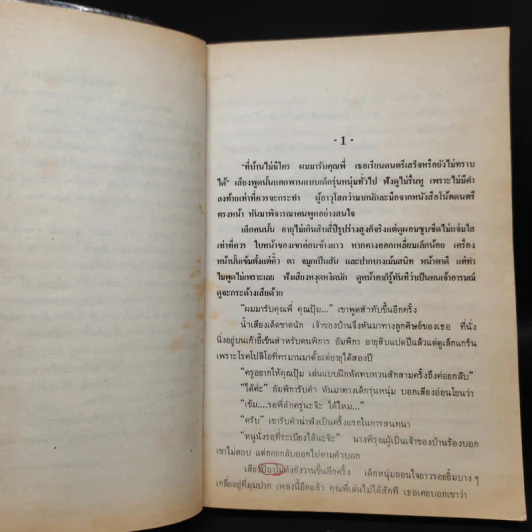 - 1 -
"ที่บ้านไม่มีใคร ผมมารับคุณพี่ เธอเรียนดนตรีเสร็จหรือยังไม่ทราบ
ได้" เสียงพูดนั้นแตกพานแบบเด็กรุ่นหนุ่มทั่วไป ฟังดูไม่รื่นหู เพราะไม่มีคำ
ลงท้ายเท่าที่ควรจะกระทำ ผู้อาวุโสกว่ามากนักละมือจากหนังสือโน้ตดนตรี
ตรงหน้า หันมาพิจารณาคนพูดอย่างสนใจ
เด็กคนนั้น อายุไม่เกินสิบสี่ปีรูปร่างสูงค้ำจริงแต่ดูผอมซูบซีดไม่แจ่มใส
เท่าที่ควร ใบหน้าของเขาค่อนข้างยาว หากคางออกเหลี่ยมเล็กน้อย เครื่อง
หน้านั้นเข้มตั้งแต่คิ้ว ตา จมูกเป็นสัน และปากบางเม้มสนิท หน้าตาดี แต่ท่า
ไม่พูดไม่เพราะเลย ฟังเสียงหงุดหงิดนัก ดูหน้าตาก็รู้ทันทีว่าเป็นคนเจ้าอารมณ์
ดูจะกระด้างเสียด้วย
"ผมมารับคุณพี่ คุณปุ้ม..." เขาพูดสำทับขึ้นอีกครั้ง
น้ำเสียงเด็ดขาดนัก เจ้าของบ้านจึงหันมาทางลูกศิษย์ของเธอ ที่นั่ง
นิ่งอยู่บนเก้าอี้เข็นสำหรับคนพิการ อัมพิกา อายุสิบแปดปีแล้วแต่ดูเล็กแกร็น
เพราะโรคโปลิโอที่ทรมานมาตั้งแต่อายุได้สองปี
"ครูอยากให้คุณปุ้ม เล่นแบบฝึกหัดทบทวนสักสามครั้งถึงค่อยกลับ"
"ได้ค่ะ" อัมพิการับคำ หันมาทางเด็กรุ่นหนุ่ม บอกเสียงอ่อนโยนว่า
"เข้ม....รอพี่สักครู่นะจ๊ะ ได้ไหม..."
"ครับ" เขารับคำน่าฟังเป็นครั้งแรกในการสนทนา
"หนูนั่งรอที่ระเบียงได้นะจ๊ะ" นางพิรุณผู้เป็นเจ้าของบ้านร้องบอก
เขาไม่ตอบ แต่ถอยกลับออกไปตามคำบอก
เสียงเปียโนดังกังวานขึ้นอีกครั้ง เด็กหนุ่มถอนใจยาวรอยยิ้มบาง ๆ
เกลื่อนอยู่ที่มุมปาก เพลงนี้อีกแล้ว คุณพี่เล่นไม่ได้สักที เธอเคยบอกเขาว่า